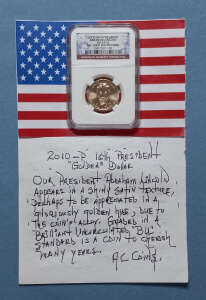 2010-D 16th President
"Golden" Dollar
Our President Abraham Lincoln
appears in a shiny satin texture,
perhaps to be appreciated in a
gloriously golden hue, due to
this coin's alloy. Graded in a
Brilliant Uncirculated "BU"
standard is a coin to cherish
many years.
AC Coins